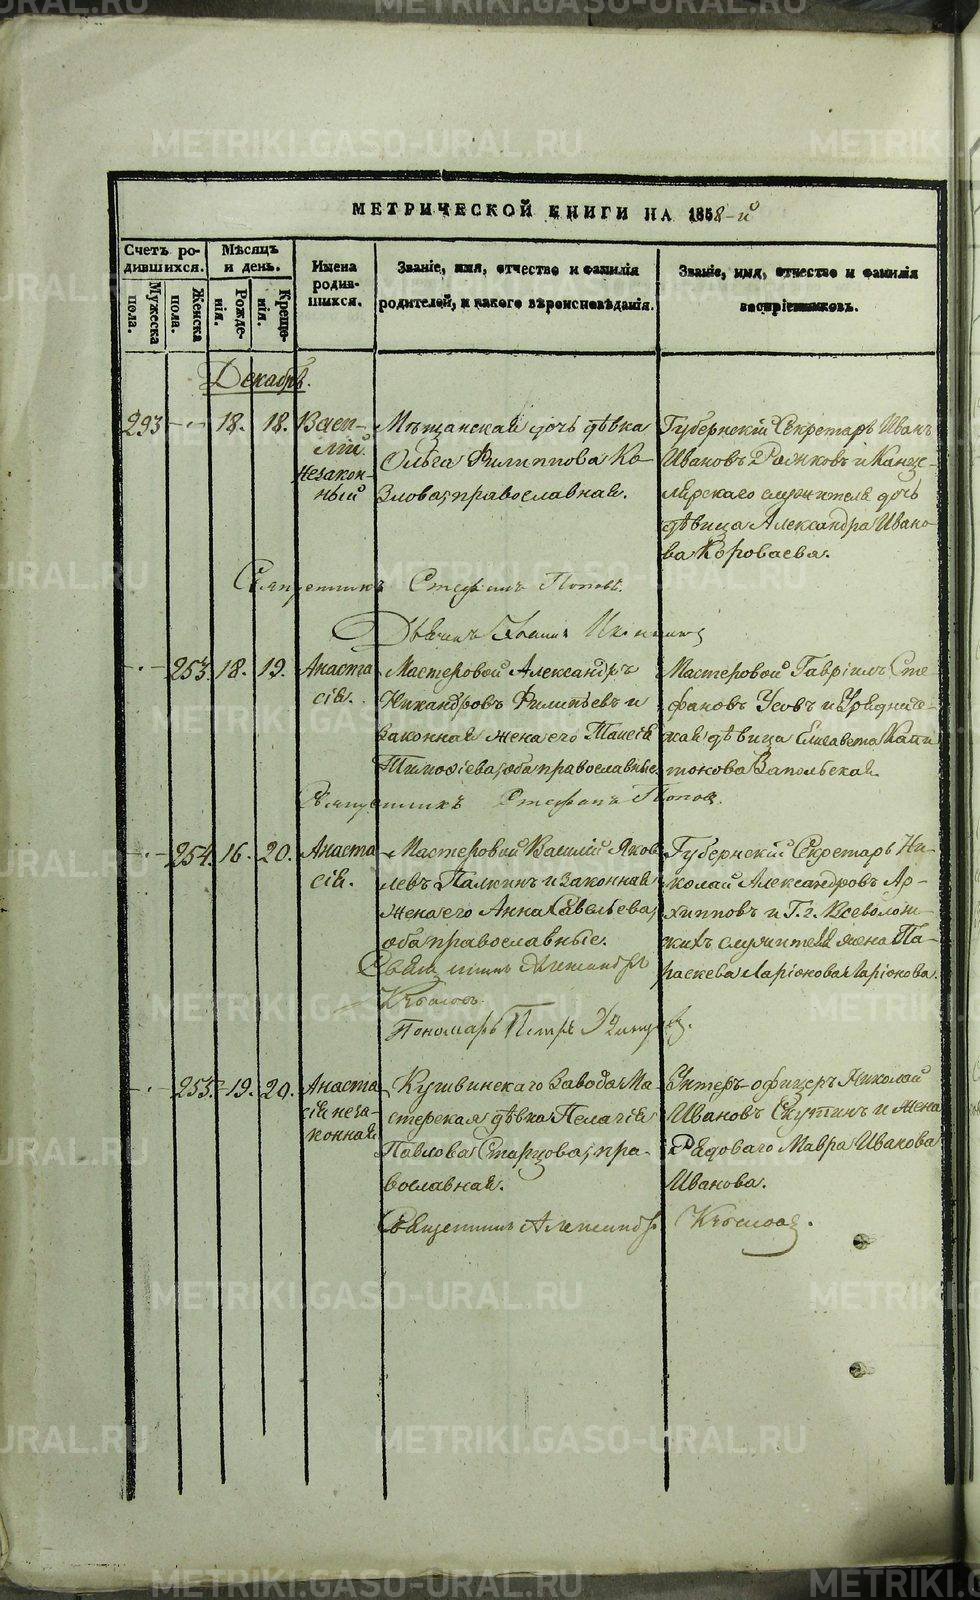 METRIKI.GASO-URAL.RU
МЕТРИЧЕСКОЙ КНИГИ НА 1858-й
Счетъ ро-
дившихся.
Мѣсяцъ
и день.
Имена
родив-
шихся.
Званіе, имя, отчество и фамилія
родителей, и какого вѣроисповѣданія.
Званіе, имя, отчество и фамилія
воспріемниковъ.
Мужеска
пола.
Женска
пола.
Рожде-
нія.
Креще-
нія.
Декабрь.
293 18. 18. Васи-
лій
незакон-
ный
Мѣщанская дочь дѣвка
Ольга Филиппова Ко-
злова, православная.
Губернскій Секретарь Иванъ
Ивановъ и Канце-
лярскаго служителя дочь
дѣвица Александра Ивано-
ва Короваева.
Священникъ Стефанъ Поповъ.
Дьячекъ
253. 18. 19. Анаста
сія.
Мастеровой Александръ
Никандровъ Филипьевъ и
законная жена его Таисія
Тимофіева, оба православные.
Мастеровой Гавріилъ Сте
фановъ Усовъ и Уряднич-
ская дѣвица Елисавета Капи
тонова Запольская.
Священникъ Стефанъ Поповъ.
254. 16. 20. Анаста
сія.
Мастеровой Василій Яков
левъ Палкинъ и законная
жена его Анна Савельева,
оба православные.
Губернскій Секретарь Ни-
колай Александровъ Ар-
хипповъ и Г. г. Всеволож-
скихъ служителя жена Па-
раскева Ларіонова Ларіонова.
Священникъ Александръ
Пономарь Петръ
255. 19. 20. Анаста
сія неза-
конная
Кушвинскаго Завода Ма-
стерская дѣвка Пелагія
Павлова Старцова, пра-
вославная.
Унтеръ-офицеръ Николай
Ивановъ Скутинъ и жена
Рядоваго Мавра Иванова
Иванова.
Священникъ Александръ